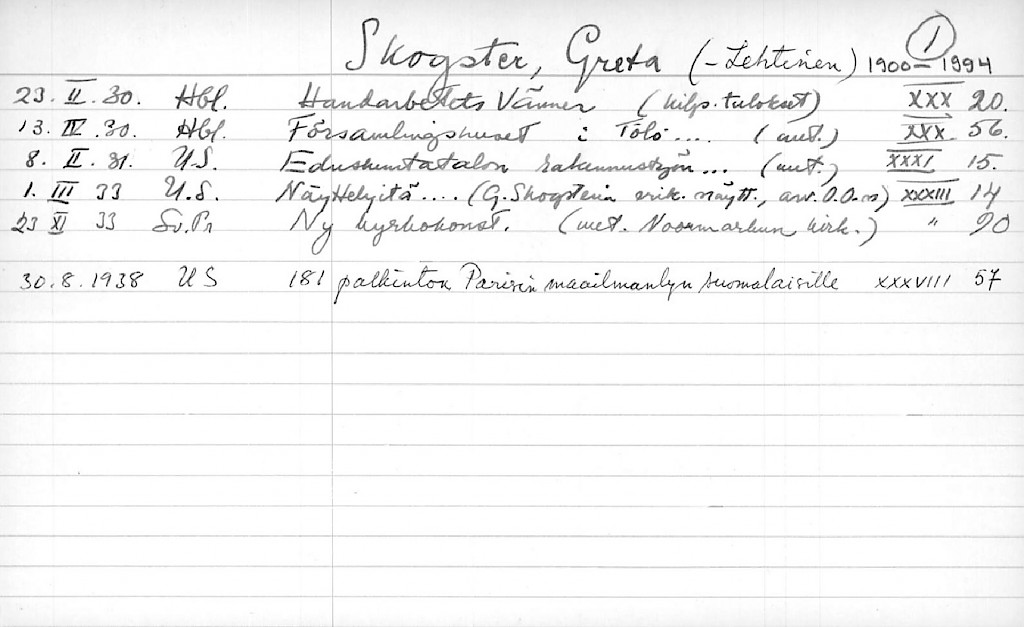 Skogster, Greta (-Lehtinen) 1900-1994 1
23. II. 30. Hbl. Handarbetets Vänner (kilp. tulokset) XXX 20.
13. IV. 30. Hbl. Församlingshuset i Tölö.... (ant.) XXX. 56.
8. II. 31. U.S. Eduskuntatalon rakennustyön... (ant.) XXXI 15.
1. III 33 U.S. Näyttelyitä.... (G. Skogsterin erik. näytt., arv. O.O.) XXXIII 14
23 XI 33 Sv.Pr Ny kyrkokonst. (Noormarkun kirk.) " 90
30.8.1938 US 181 palkintoa Parisin maailmanlyn suomalaisille XXXVIII 57